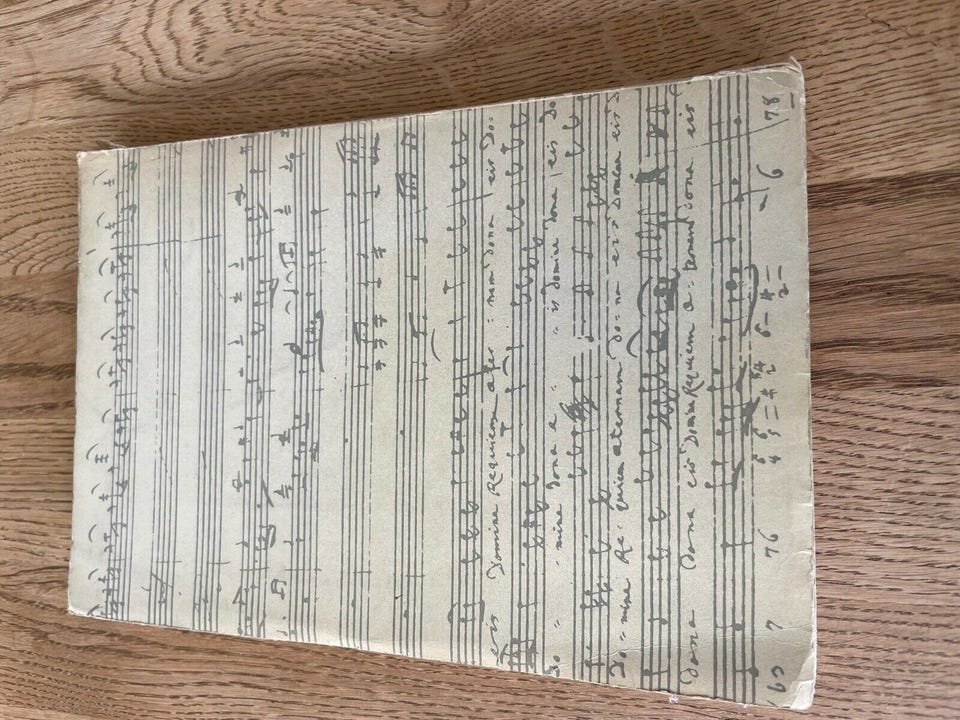 eis Domine Requiem aeter = nam dona eis Do-
Do = = mine dona e = = is Domine dona eis Do
Do = mine Re = quiem aeternam do = na eis eis
Dona dona eis Domine Requiem ae = ternam dona eis
7 76 6 78